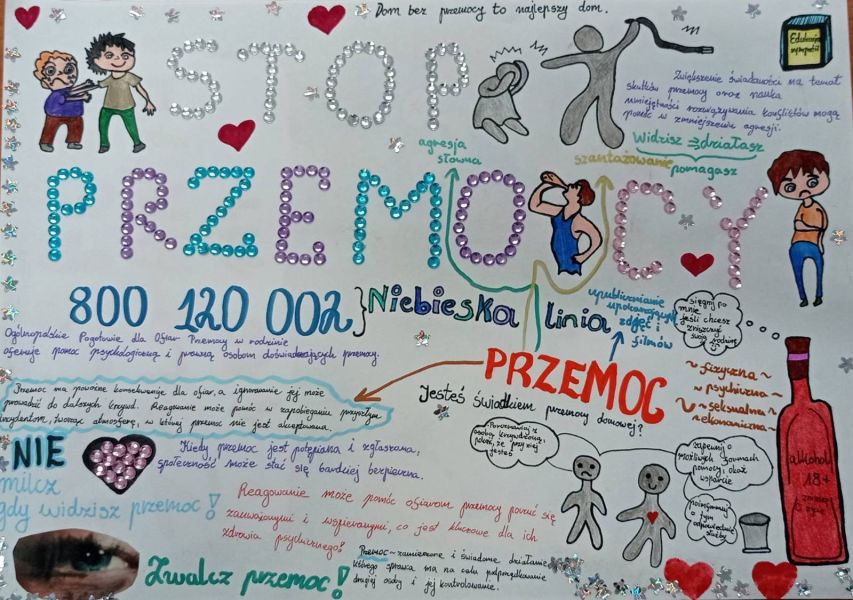 Dom bez przemocy to najlepszy dom.
STOP
PRZEMOCY
Edukacja
Zwiększenie świadomości na temat
skutków przemocy oraz nauka
umiejętności rozwiązywania konfliktów mogą
pomóc w zmniejszeniu agresji.
Widzisz działasz
pomagasz
agresja
słowna
szantażowanie
800 120 002 } Niebieska linia
Ogólnopolskie Pogotowie dla Ofiar Przemocy w rodzinie
oferuje pomoc psychologiczną i prawną osobom doświadczających przemocy.
upublicznianie
upokarzających
zdjęć i
filmów
sięgnij po
mnie
jeśli chcesz
zniszczyć
swoją rodzinę
PRZEMOC
~ fizyczna ~
~ psychiczna ~
~ seksualna ~
~ ekonomiczna ~
Przemoc ma poważne konsekwencje dla ofiar, a ignorowanie jej może
prowadzić do dalszych krzywd. Reagowanie może pomóc w zapobieganiu przyszłym
incydentom, tworząc atmosferę, w której przemoc nie jest akceptowana.
Jesteś świadkiem przemocy domowej?
Porozmawiaj z
osobą krzywdzoną,
pokaż, że przy niej
jesteś
zapewnij o
możliwych formach
pomocy, okaż
wsparcie
poinformuj
o tym
odpowiednie
służby
alkohol
18+
NIE
milcz
gdy widzisz przemoc!
Kiedy przemoc jest potępiana i zgłaszana,
społeczność może stać się bardziej bezpieczna.
Reagowanie może pomóc ofiarom przemocy poczuć się
zauważonymi i wspieranymi, co jest kluczowe dla ich
zdrowia psychicznego!
Zwalcz przemoc!
Przemoc - zamierzone i świadome działanie,
którego sprawca ma na celu podporządkowanie
drugiej osoby i jej kontrolowanie.